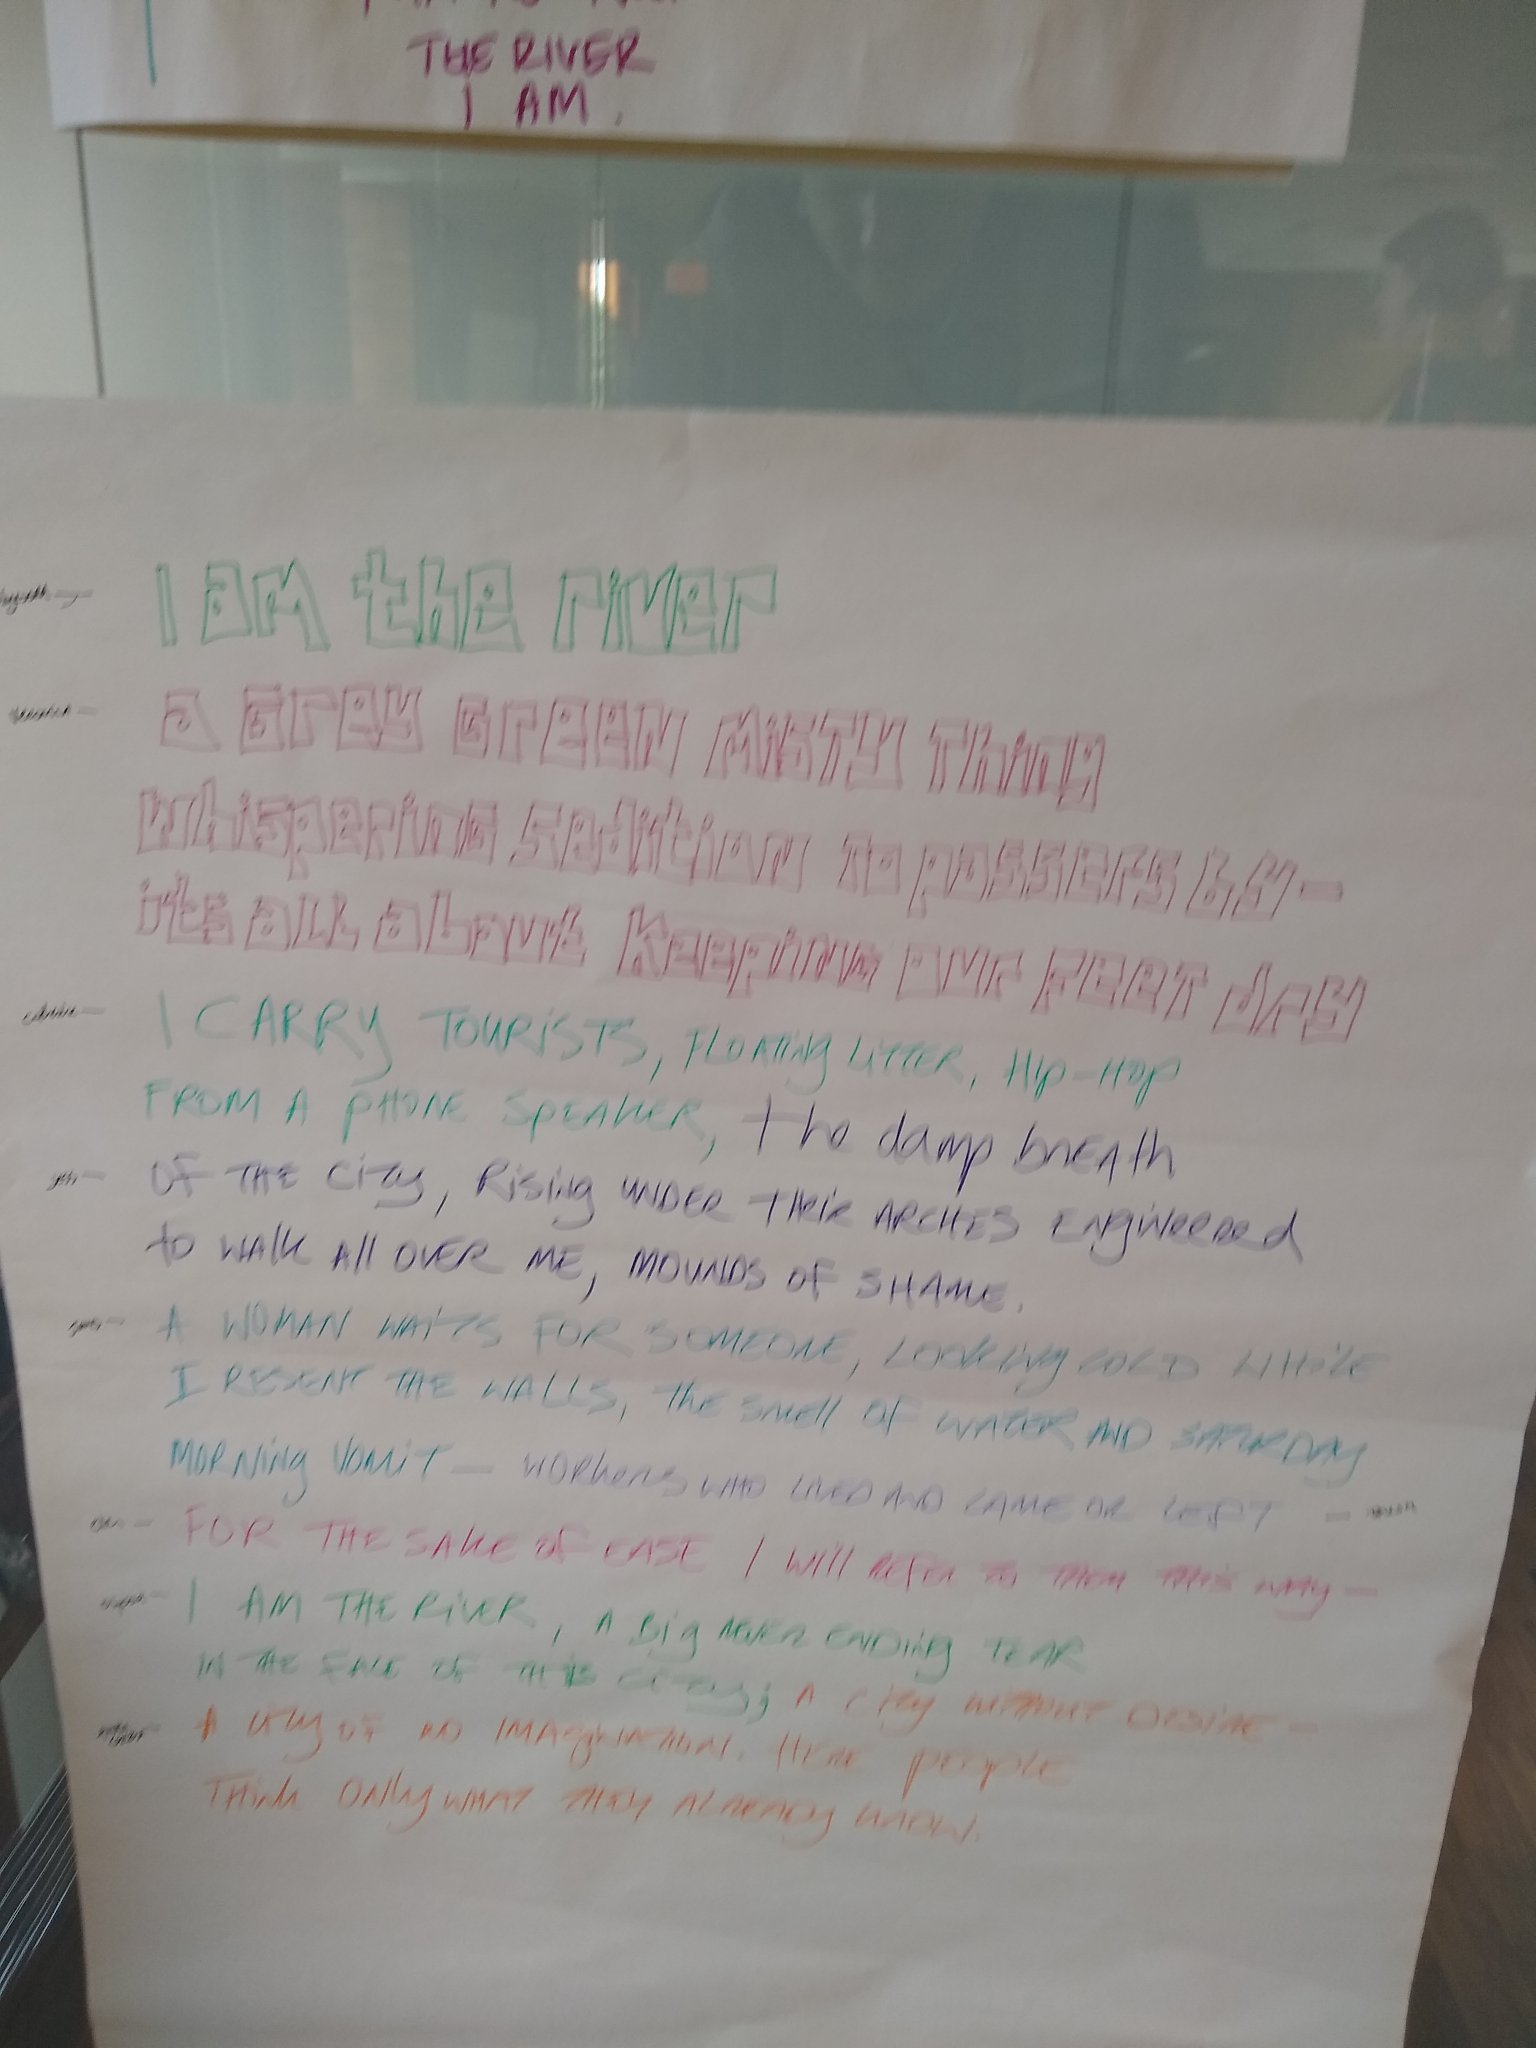 THE RIVER
I AM.
I am the river
a Grey GREEN MISTY Thing
Whispering Sedition To passers by—
it's all about Keeping our FEET dry
I CARRY TOURISTS, FLOATING LITTER, HIP-HOP
FROM A PHONE SPEAKER, the damp breath
OF THE CITY, RISING UNDER THEIR ARCHES ENGINEERED
to WALK All OVER ME, MOUNDS OF SHAME.
A WOMAN WAITS FOR SOMEONE, LOOKING COLD WHILE
I RESENT THE WALLS, THE SMELL OF WATER AND SATURDAY
MORNING VOMIT — WORKERS WHO LIVED AND CAME OR LEFT —
FOR THE SAKE OF EASE I WILL REFER TO THEM THIS WAY —
I AM THE RIVER, A BIG NEVER ENDING TEAR
IN THE FACE OF THIS CITY; A CITY WITHOUT DESIRE —
A CITY OF NO IMAGINATION. HERE PEOPLE
THINK ONLY WHAT THEY ALREADY KNOW.